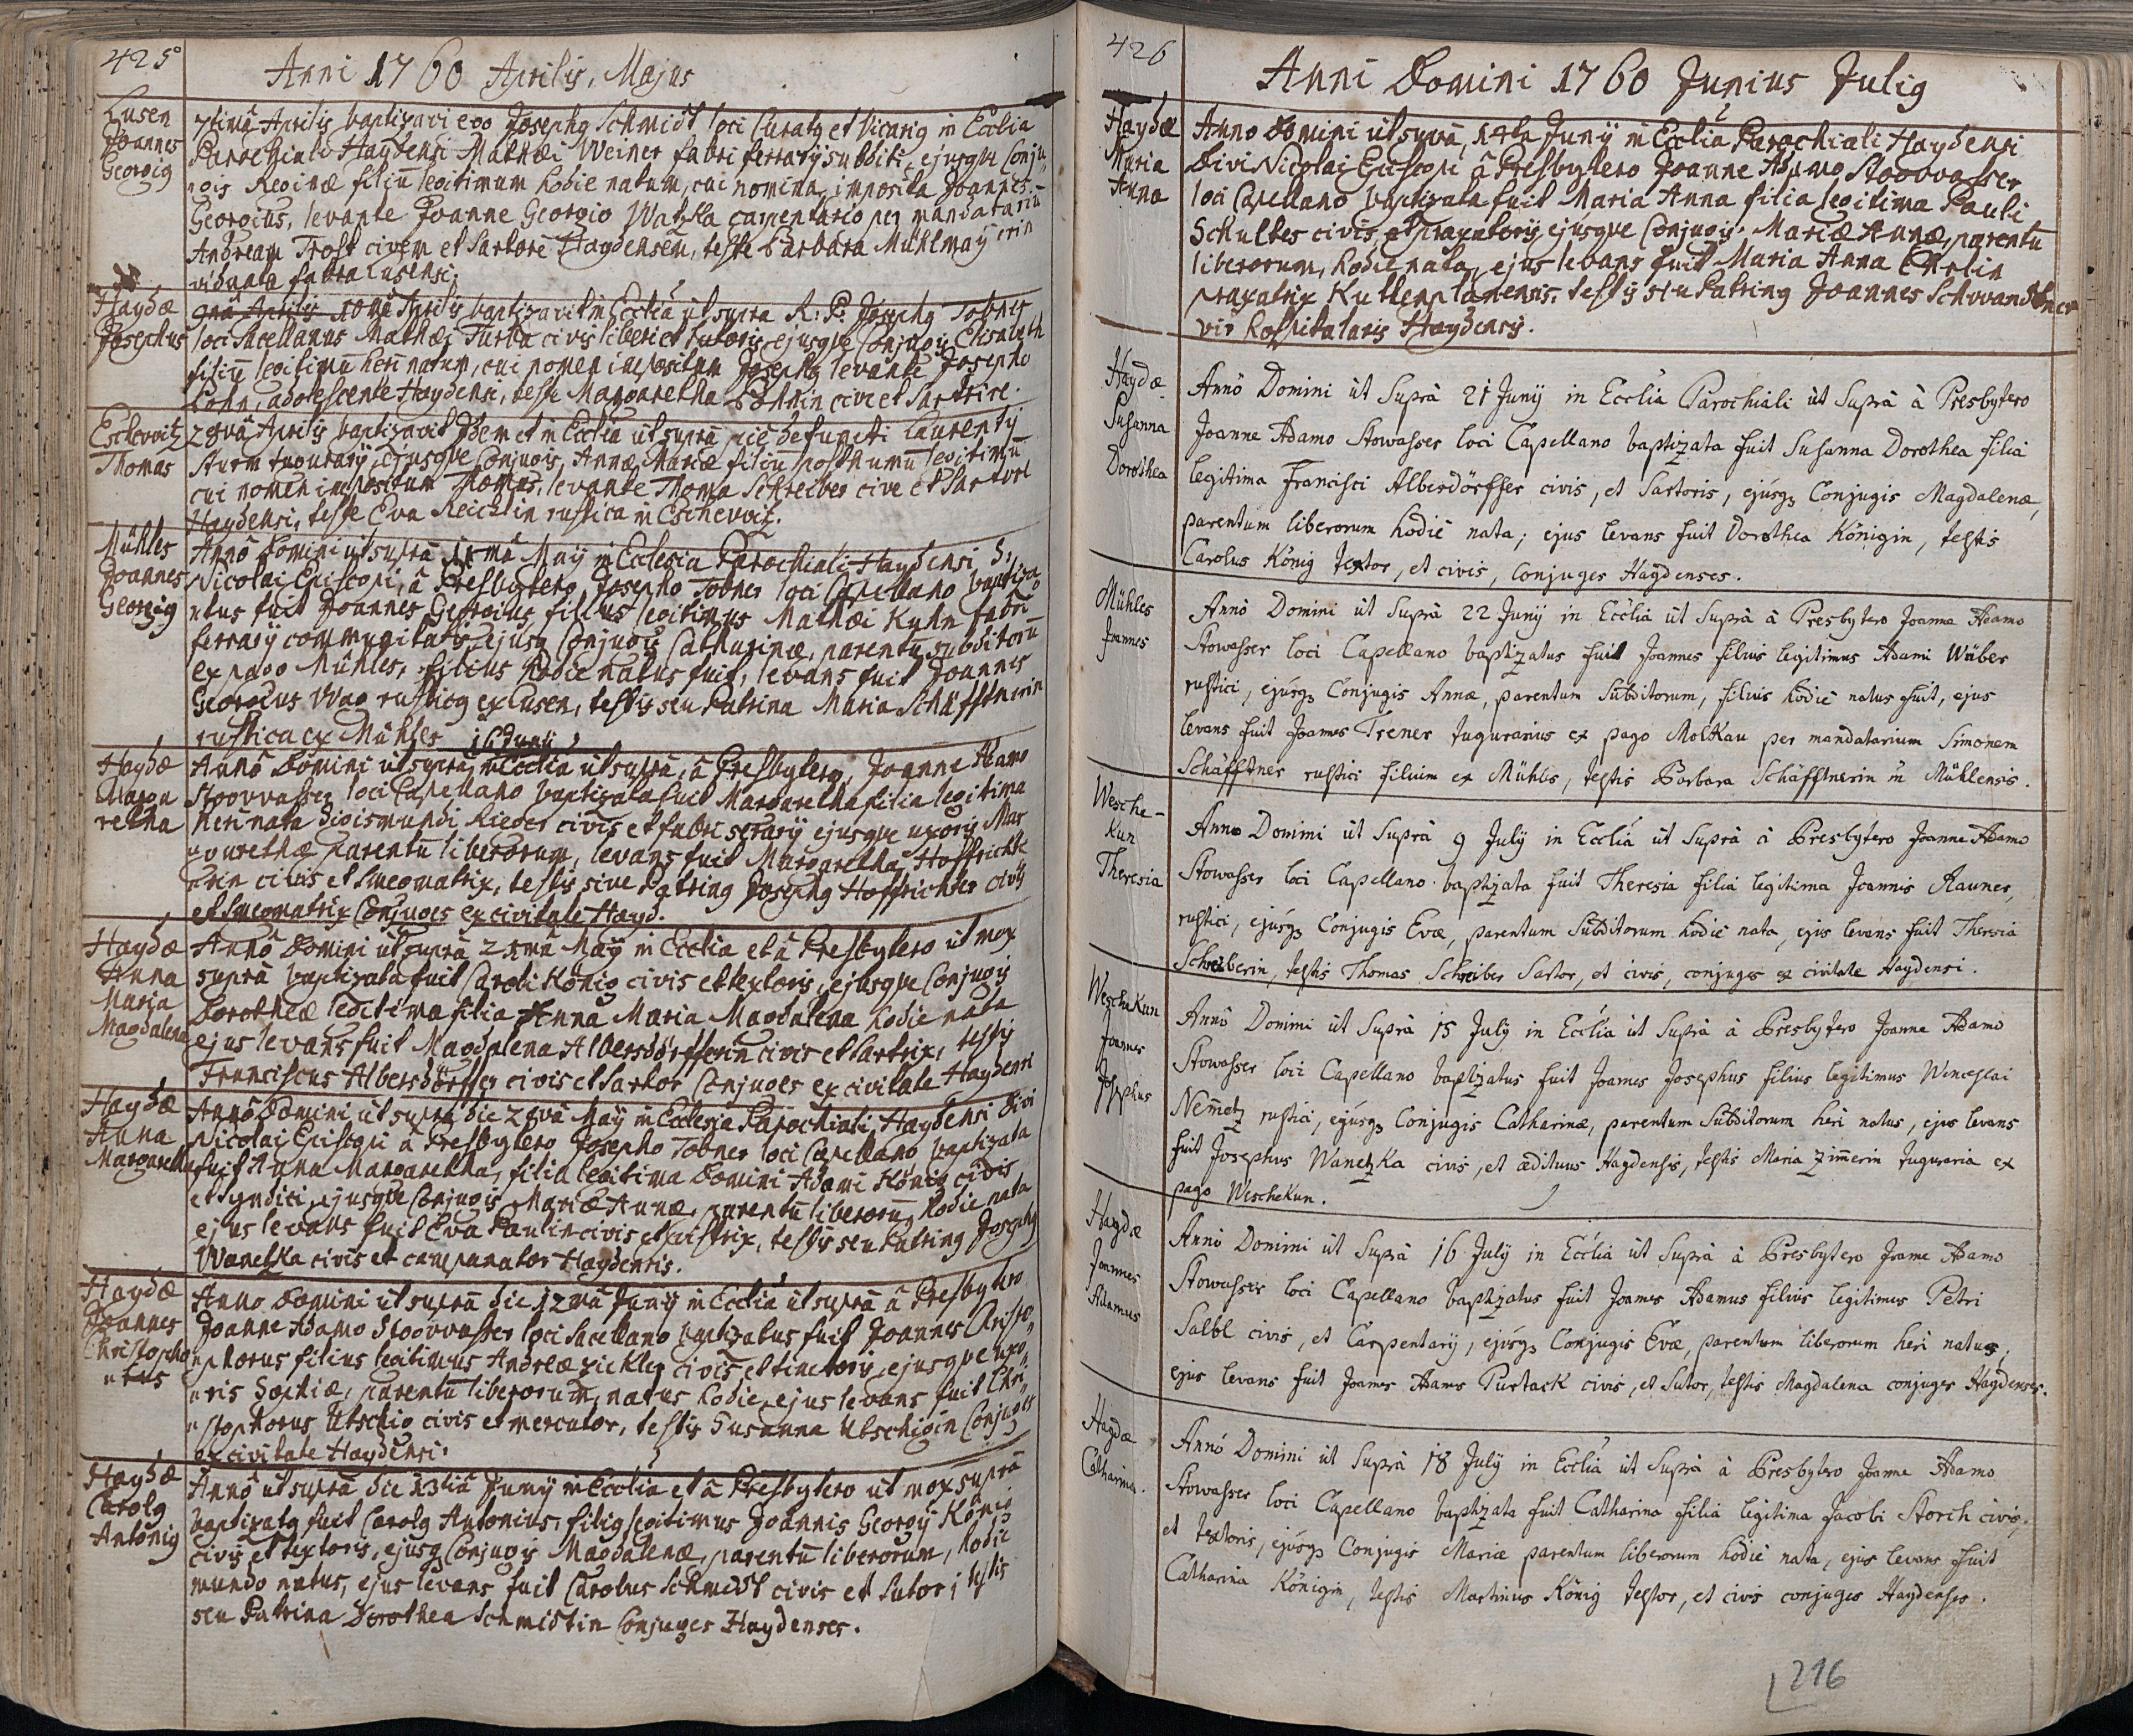 425
Anni 1760 Aprilis, Majus
Lusen
Joannes
Georgig
7timâ Aprilis baptizavi ego Josephg Schmidt loci Curatg et Vicarig in Ecclia
Parochiali Haydensi Mathæi Weiner fabri ferrarÿ subditi, ejusque Conju„
„gis Reginæ filiū legitimum hodie natum, cui nomina imposita Joannes
Georgius, levante Joanne Georgio Watzka carpentario per mandatariū
Andream Trost civem et Sartorē Haydensem, teste Barbara Mühlmaÿerin
viduata fabra Lusensi.
Haydæ
Josephus
10mâ Aprilis baptizavit in Ecclia ut supra R: P: Josephg Tobner
loci Sacellanus Mathæi Turba civis liberi et Sutoris, ejusque Conjugis Elisabeth
filiū legitimū heri natum, cui nomen impositum Josephg levante Josepho
Böhm, adolescente Haydensi, teste Margaretha Böhmin cive et Sartrice.
Eschovitz
Thomas
28vâ Aprilis baptizavit Idem et in Ecclia ut supra pie defuncti Laurentÿ
Sturm tugurarÿ, ejusque Conjugis Annæ Mariæ filiū posthumū legitimū
cui nomen impositum Thomas, levante Thoma Schreiber cive et Sartore
Haydensi, teste Eva Reichlin rustica in Eschovitz.
Mühles
Joannes
Georgig
Annô Domini ut suprà 11mâ Maÿ in Ecclesia Parochiali Haydensi S:
Nicolai Episcopi, â Presbytero Josepho Tobner loci Capellano baptiza
„tus fuit Joannes Georgius, filius legitimus Mathæi Kuhn fabri
ferrarÿ communitatis, ejusq Conjugis Catharinæ, parentū subditorū
ex pago Mühles, filius hodie natus fuit, levans fuit Joannes
Georgius Wag rusticg ex Lusen, testis seu Patrina Maria Schäfftnerin
rustica ex Mühles
Haydæ
Marga
retha
16 Junÿ
Annô Domini ut suprà in Ecclia ut suprà, â Presbytero, Joanne Adamo
Stoovvasser loci Capellano baptizata fuit Margaretha filia legitima
heri nata Sigismundi Rieger civis et fabri serarÿ ejusque uxoris Mar
„garethæ parentū liberorum, levans fuit Margaretha Hoffrichte
„rin civis et Smegmatrix, testis sive Patring Josephg Hoffrichter civis
et Smegmatrix Conjuges ex civitate Hayd.
Haydæ
Anna
Maria
Magdalena
Annô Domini ut suprà 21mâ Maÿ in Ecclia et â Presbytero ut mox
suprà baptizata fuit Caroli König civis et textoris, ejusque Conjugis
Dorotheæ legitima filia Anna Maria Magdalena hodie nata
ejus levans fuit Magdalena Albersdörfferin civis et Sartrix, testis
Franciscus Albersdörffer civis et Sartor Conjuges ex civitate Haydensi
Haydæ
Anna
Margaretha
Annô Domini ut suprà die 28vâ Maÿ in Ecclesia Parochiali Haydensi Divi
Nicolai Episcopi â Presbytero Josepho Tobner loci Capellano baptizata
fuit Anna Margaretha, filia legitima Domini Adami König civis
et Syndici, ejusque Conjugis Mariæ Annæ, parentū liberorū, hodie nata
ejus levans fuit Eva Paulin civis et pistrix, testis seu Patring Josephg
Wanetzka civis et campanator Haydensis.
Haydæ
Joannes
Christopho
„rus
Anno Domini ut suprà die 12mâ Junÿ in Ecclia ut suprà â Presbytero
Joanne Adamo Stoovvasser loci Sacellano baptizatus fuit Joannes Christo„
„phorus filius legitimus Andreæ Zickler civis et tinctoris, ejusque uxo„
„ris Sophiæ, parentū liberorum, natus hodie, ejus levans fuit Chri„
„stophorus Utschig civis et mercator, testis Susanna Utschigin Conjuges
ex civitate Haydensi.
Haydæ
Carolg
Antonig
Annô ut suprà die 13tiâ Junÿ in Ecclia et â Presbytero ut mox suprà
baptizatg fuit Carolg Antonius, filig legitimus Joannis Georgÿ König
civis et textoris, ejusq Conjugis Magdalenæ, parentū liberorum, hodie
mundo natus, ejus levans fuit Carolus Schmidt civis et Sutor, testis
seu Patrina Dorothea Schmidtin Conjuges Haydenses.
426
Anni Domini 1760 Junius Julig
Haydæ
Maria
Anna
Anno Domini ut suprà, 14ta Junÿ in Ecclia Parochiali Haydensi
Divi Nicolai Episcopi â Presbytero Joanne Adamo Stoovvasser
loci Capellano baptizata fuit Maria Anna filia legitima Pauli
Schultes civis et praxatoris, ejusque Conjugis Mariæ Annæ, parentū
liberorum, hodie nata, ejus levans fuit Maria Anna
praxatrix Kuttenplanensis, testis seu Patring Joannes Schwandtner
vir hospitalaris Haydensis.
Haydæ
Susanna
Dorothea
Annô Domini ùt Suprà 21 Junÿ in Ecclia Parochiali ùt Suprà à Presbytero
Joanne Adamo Stowasser loci Capellano baptizata fuit Susanna Dorothea filia
legitima Francisci Albersdörffer civis, et Sartoris, ejúsqz Conjugis Magdalenæ,
parentum liberorum hodiè nata; ejus levans fuit Dorothea Königin, testis
Carolus König textor, et civis, conjuges Haydenses.
Mühles
Joannes
Annô Domini ùt Suprà 22 Junÿ in Ecclia ùt Suprà à Presbytero Joanne Adamo
Stowasser loci Capellano baptizatus fuit Joannes filius legitimus Adami Wäber
rustici, ejúsqz Conjugis Annæ, parentum Subditorum, filius hodiè natus fuit, ejus
levans fuit Joannes Trener tugurarius ex pago Molkau per mandatarium Simonem
Schäfftner rustici filium ex Mühles, testis Barbara Schäfftnerin in Mühlensis.
Wesche-
Kun
Theresia
Anno Domini ùt Suprà 9 Julÿ in Ecclia ùt Suprà à Presbytero Joanne Adamo
Stowasser loci Capellano baptizata fuit Theresia filia legitima Joannis Rauner,
rustici, ejúsqz Conjugis Evæ, parentum Subditorum hodiè nata, ejus levans fuit Theresia
Schreiberin, testis Thomas Schreiber Sartor, et civis, conjuges ex civitate Haydensi.
WescheKun
Joannes
Josephus
Annô Domini ùt Suprà 15 Julÿ in Ecclia ùt Suprà à Presbytero Joanne Adamo
Stowasser loci Capellano baptizatus fuit Joannes Josephus filius legitimus Wenceslai
Nem̄etz rustici, ejúsqz Conjugis Catharinæ, parentum Subditorum heri natus, ejus levans
fuit Josephus Wanetzka civis, et ædituus Haydensis, testis Maria Zim̄erin tuguraria ex
pago WescheKun.
Haydæ
Joannes
Adamus
Annô Domini ùt Suprà 16 Julÿ in Ecclia ùt Suprà à Presbytero Joanne Adamo
Stowasser loci Capellano baptizatus fuit Joannes Adamus filius legitimus Petri
Salbl civis, et Carpentarÿ, ejúsqz Conjugis Evæ, parentum liberorum heri natus,
ejus levans fuit Joannes Adamus Purtack civis, et Sutor, testis Magdalena conjuges Haydenses.
Haydæ
Catharina.
Annô Domini ùt Suprà 18 Julÿ in Ecclia ùt Suprà à Presbytero Joanne Adamo
Stowasser loci Capellano baptizata fuit Catharina filia legitima Jacobi Storch civis,
et textoris, ejúsqz Conjugis Mariæ parentum liberorum hodiè nata, ejus levans fuit
Catharina Königin, testis Martinus König textor, et civis conjuges Haydenses.
216